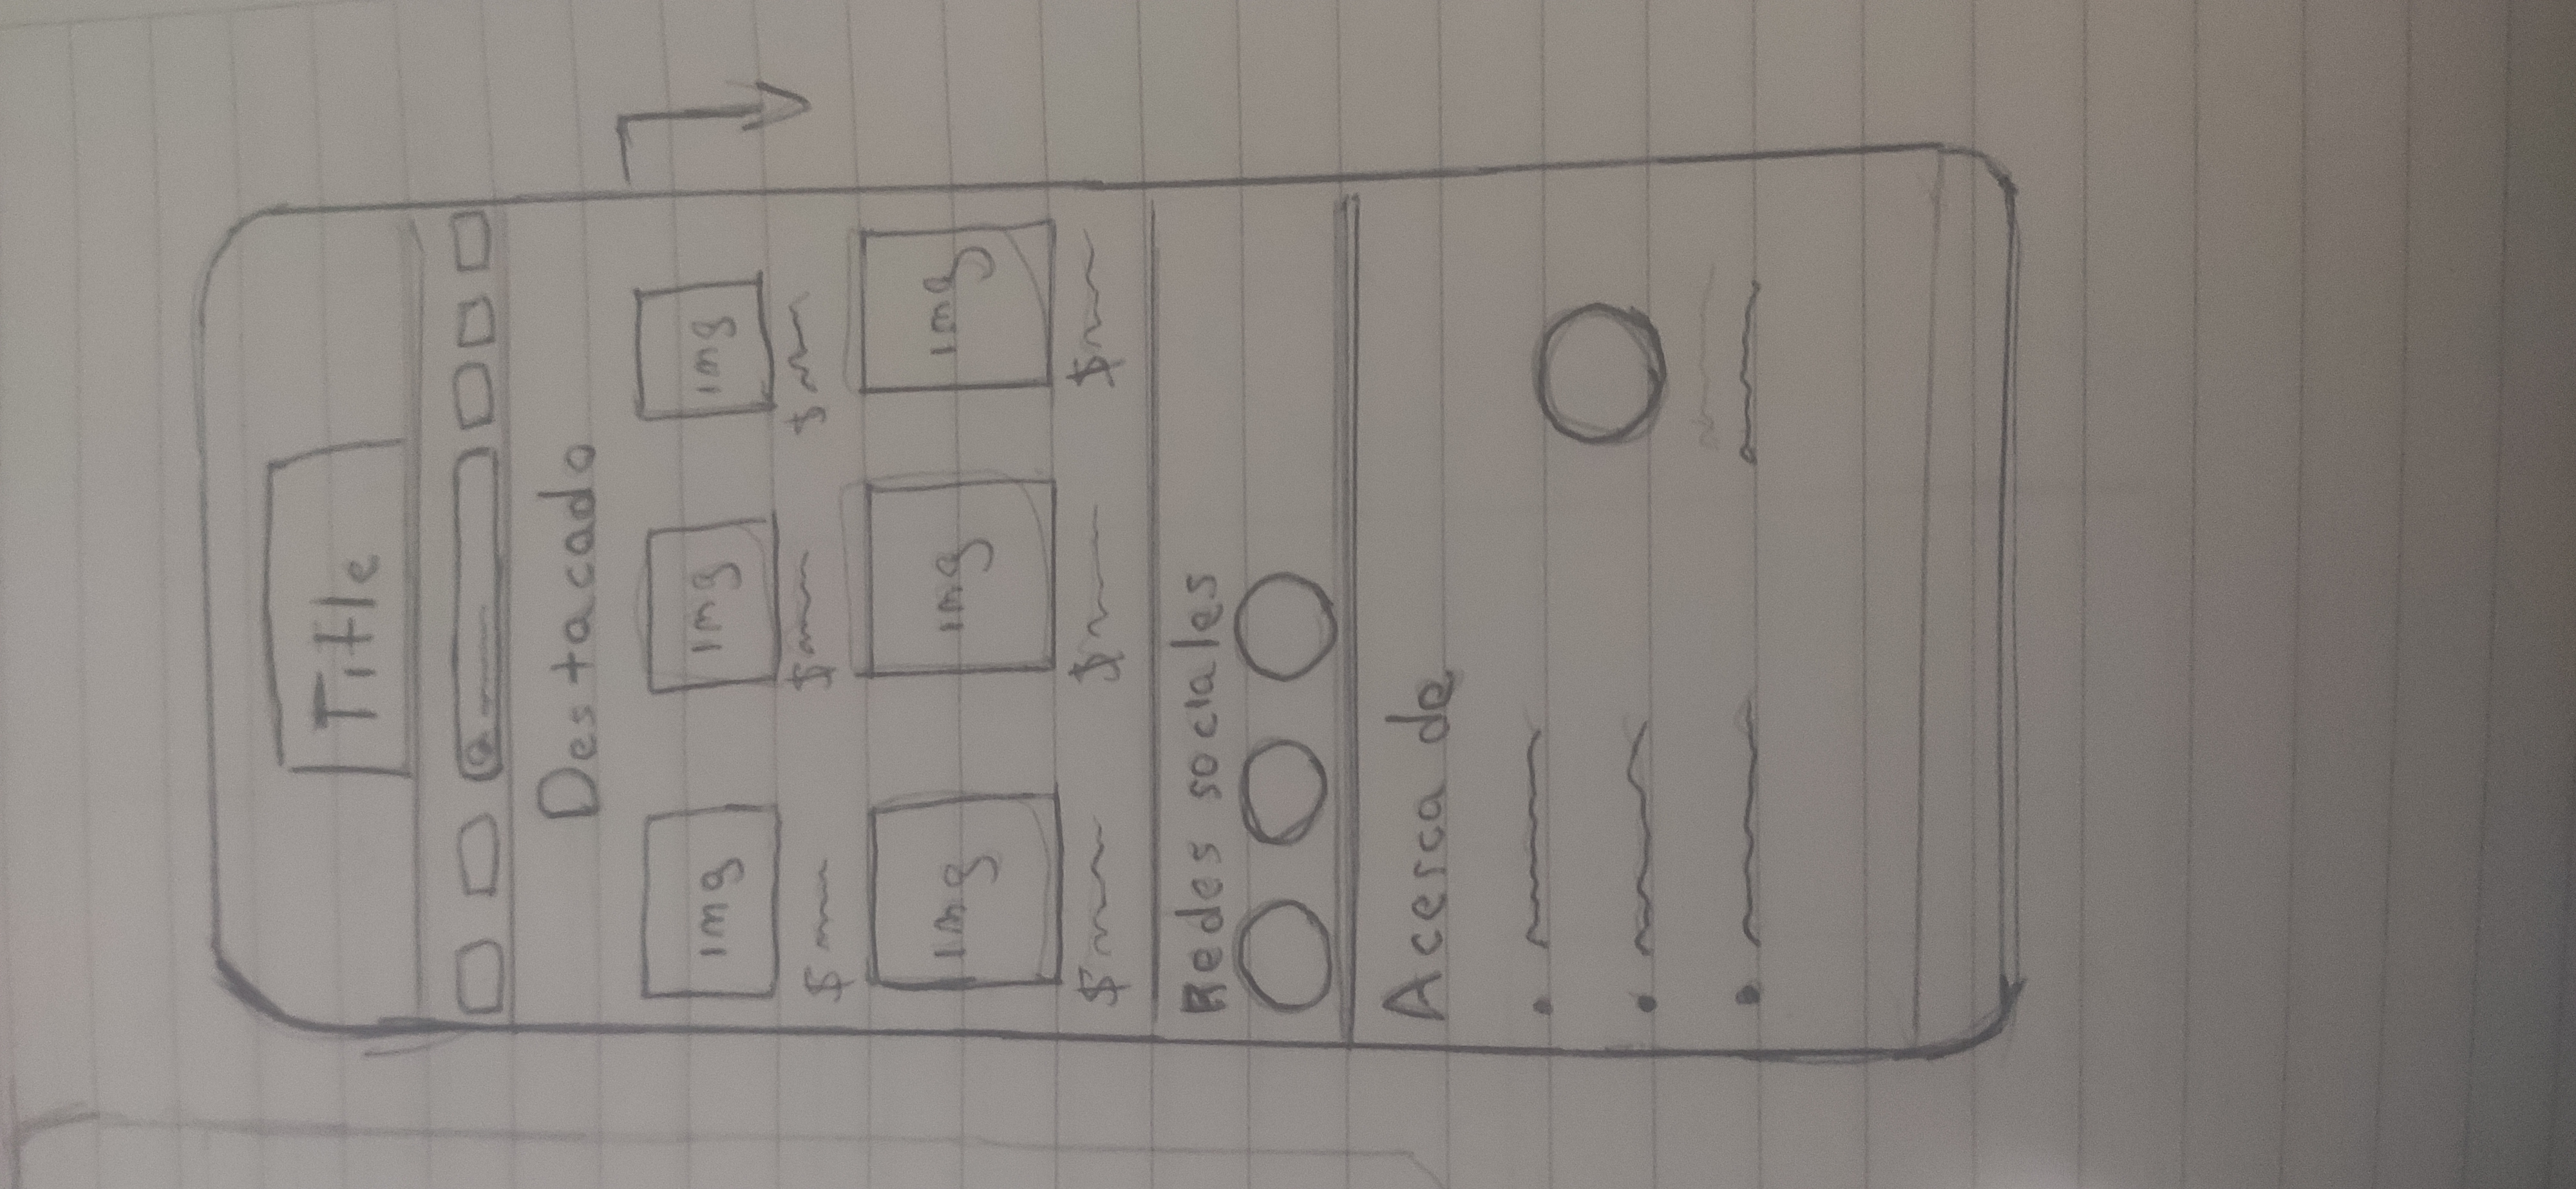 Title
Destacado
img img img
$ $ $
img img img
$ $ $
Redes sociales
Acerca de